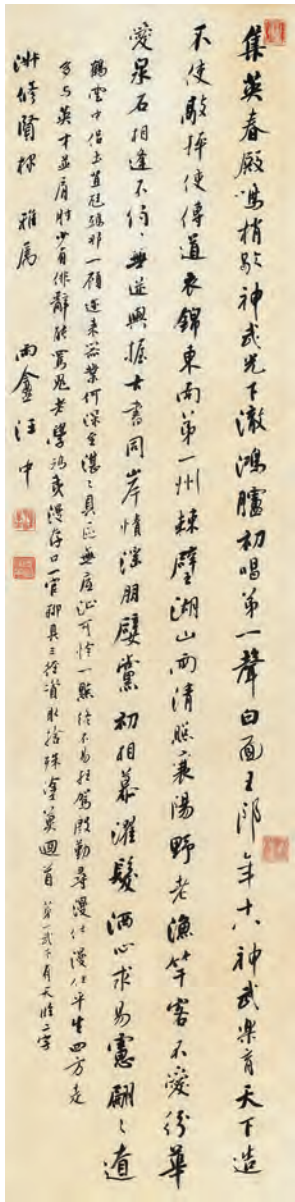 集英春殿鳴梢歇神武光下澈鴻臚初唱第一聲白面王郎年十八神武樂育天下造
不使敲枰使傳道衣錦東南第一州棘璧湖山兩清照襄陽野老漁竿客不愛紛華
愛泉石相逢不約〻無逆興握古書同岸幘淫朋嬖黨初相慕濯髮洒心求易慮翩〻遼
鶴雲中侣土苴尪鴟那一顧迩来器業何深至湛〻具區無底沚可怜一點終不易枉駕殷勤尋漫仕漫仕平生四方走
多与英才並肩肘少有俳辭能罵鬼老學鴟夷漫存口一官聊具三徑資取捨殊塗莫迴首 第一武下有天臨二字
修賢棣 雅属 雨盦汪中